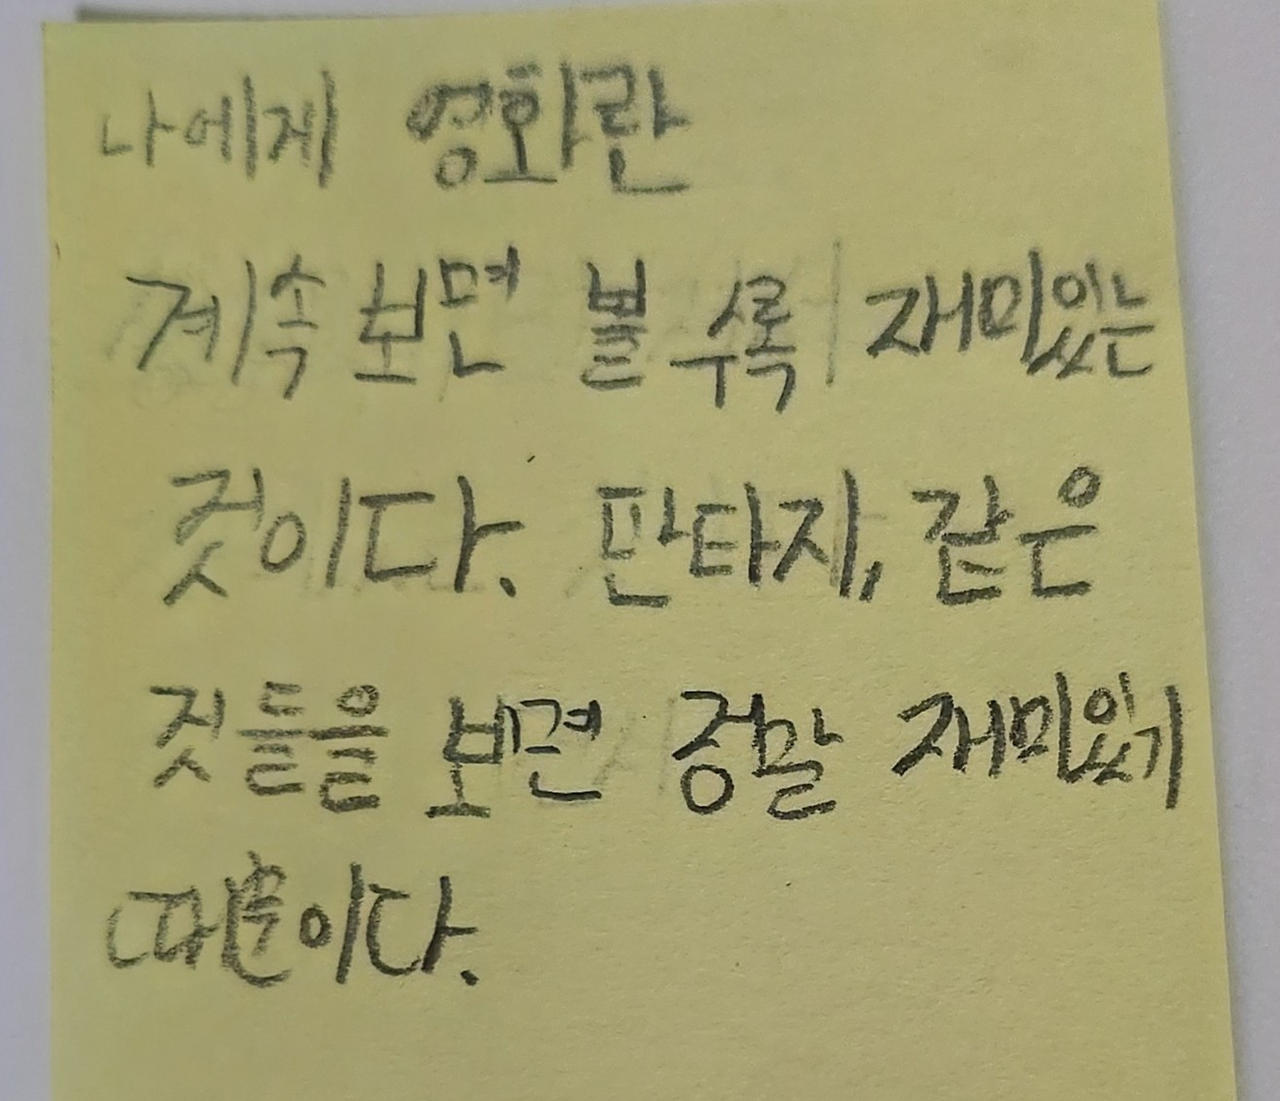 나에게 영화란
계속 보면 볼 수록 재미있는
것이다. 판타지, 같은
것들을 보면 정말 재미있기
때문이다.